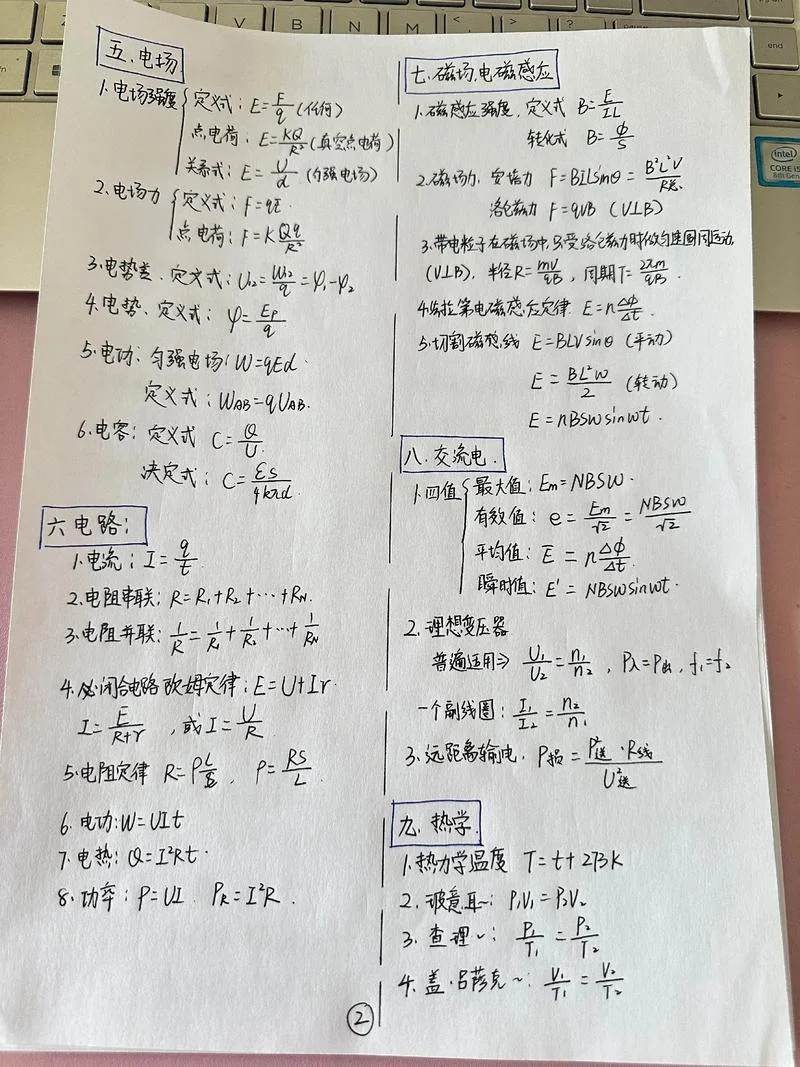 五、电场
1.电场强度 定义式：E=F/q (任何)
点电荷：E=KQ/R² (真空点电荷)
关系式：E=U/d (匀强电场)
2.电场力 定义式：F=qE
点电荷：F=KQq/R²
3.电势差、定义式：U₁₂=W₁₂/q=φ₁-φ₂
4.电势、定义式：φ=Ep/q
5.电功：匀强电场：W=qEd.
定义式：W_AB=qU_AB.
6.电容：定义式 C=Q/U
决定式：C=εs/4kπd
六 电路：
1.电流：I=q/t
2.电阻串联：R=R₁+R₂+…+R_N
3.电阻并联：1/R=1/R₁+1/R₂+…+1/R_N
4.闭合电路欧姆定律：E=U+Ir
I=E/R+r，或I=U/R
5.电阻定律 R=ρL/S，ρ=RS/L
6.电功：W=UIt
7.电热：Q=I²Rt.
8.功率：P=UI P_R=I²R.
七.磁场、电磁感应
1.磁感应强度，定义式 B=F/IL
转化式 B=Φ/S
2.磁场力，安培力 F=BILsinθ=B²L²V/R总
洛仑兹力 F=qVB (V⊥B)
3.带电粒子在磁场中，只受洛仑兹力时做匀速圆周运动
(V⊥B)，半径R=mV/qB，周期T=2πm/qB.
4.法拉第电磁感应定律 E=nΔΦ/Δt.
5.切割磁感线 E=BLVsinθ (平动)
E=BL²ω/2 (转动)
E=nBSωsinωt.
八.交流电.
1.四值 最大值：Em=NBSω.
有效值：e=Em/√2=NBSω/√2
平均值：E̅=nΔΦ/Δt
瞬时值：E'=NBSωsinωt.
2.理想变压器
普遍适用⇒ U₁/U₂=n₁/n₂，P入=P出，f₁=f₂
一个副线圈：I₁/I₂=n₂/n₁
3.远距离输电，P损=P²送·R线/U²送
九.热学.
1.热力学温度 T=t+273K
2.玻意耳~：P₁V₁=P₂V₂
3.查理~：P₁/T₁=P₂/T₂
4.盖·吕萨克~：V₁/T₁=V₂/T₂
②
V
B
N
M
end
intel
CORE i5
8th Gen